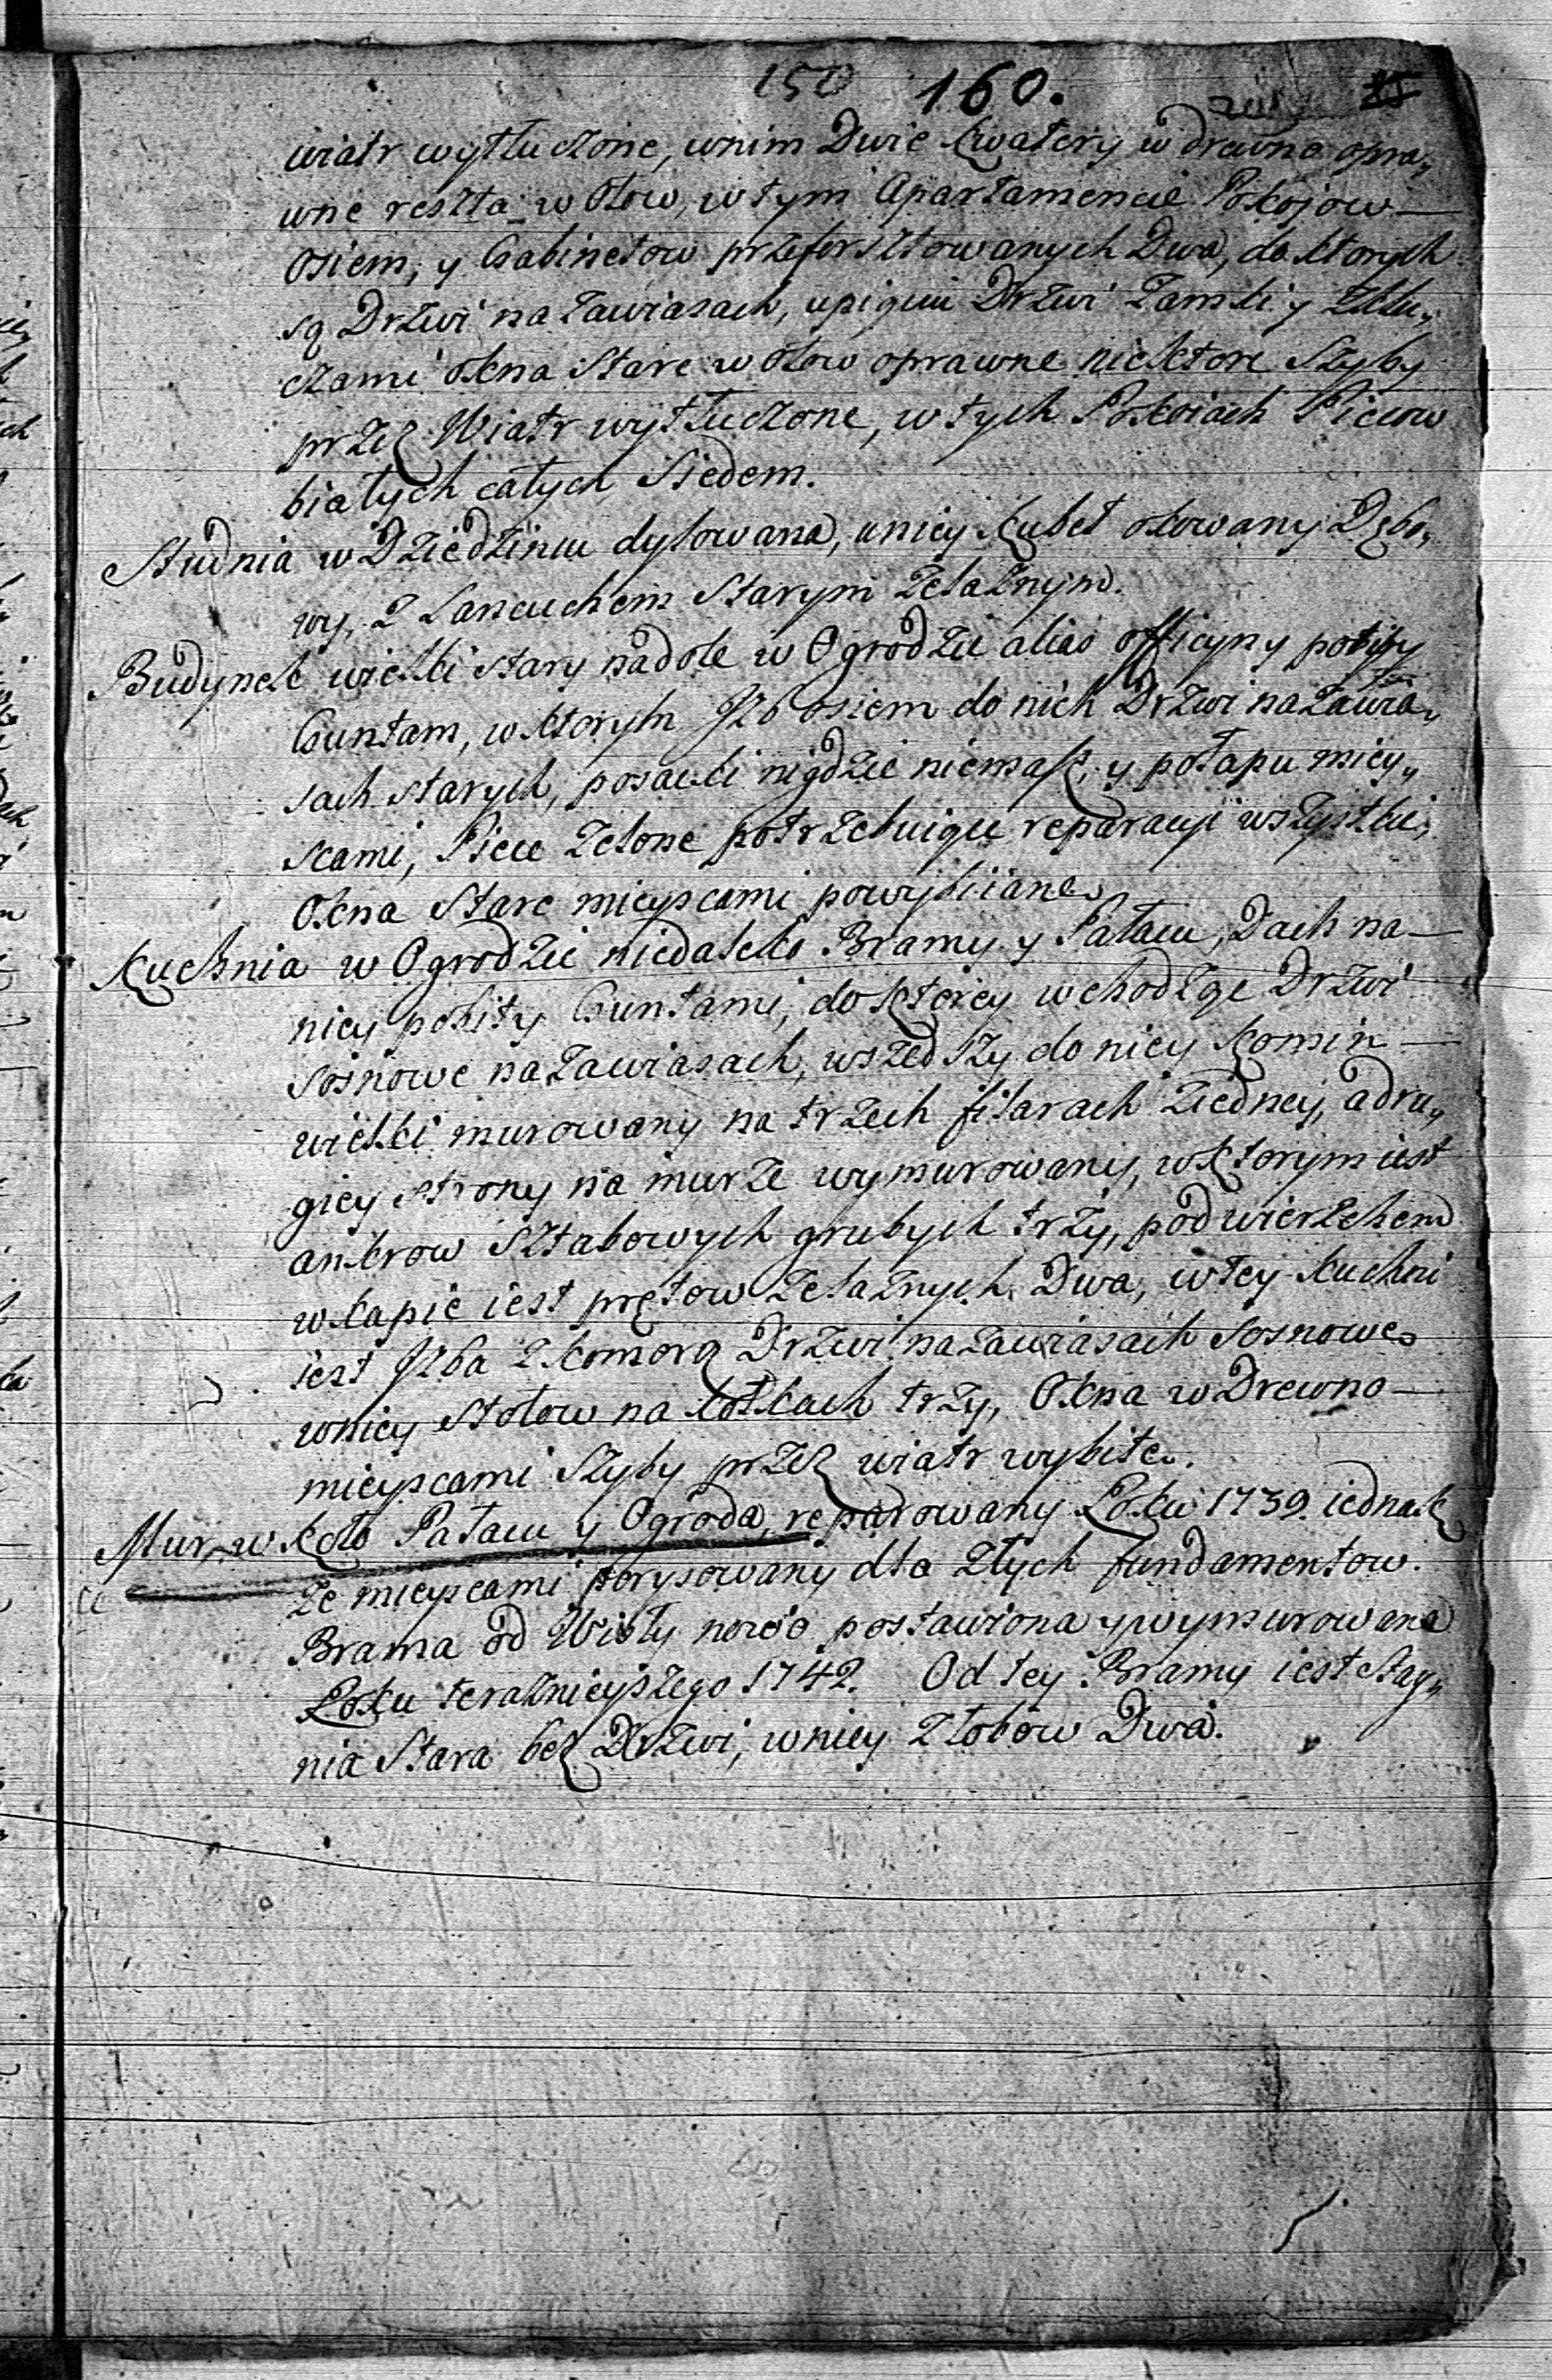 150 160.
wiatr wytłuczone, wnim Dwie kwatery w drewno opra„
wne reszta w ołow, wtym Apartamencie Pokojow —
osiem, y Gabinetow przeforsztowanych Dwa, do ktorych
są Drzwi na zawiasach, upięciu Drzwi Zamki y zklu„
czami okna Stare w ołow oprawne niektore Szyby
przez Wiatr wytłuczone, w tych Pokoiach Piecow
białych całych Siedem.
Studnia w Dziedzincu dylowana, uniey Kubeł okowany Dębo„
wy, z Lancuchem Starym Zelaznym.
Budynek wielki stary nadole w Ogrodzie alias officyny pobity
Guntam, wktorym Jzb osiem do nich Drzwi nazawia„
sach starych, posacki nigdzie niemasz, y połapu miey„
scami, Piece Zelone potrzebuiące reparacyi wszystkie,
Okna Stare mieyscami powybiiane
Kuchnia w Ogrodzie niedaleko Bramy y Pałacu, Dach na —
niey pobity Guntami, doktorey wchodząc Drzwi
sosnowe nazawiasach, wszedszy do niey Komin —
wielki murowany na trzech filarach ziedney, adru„
giey strony na murze wymurowany, wktorym iest
ankrow Sztabowych grubych trzy, podwierzchem
wkapie iest prętow Zelaznych Dwa, wtey Kuchni
iest Jzba zkomorą Drzwi nazawiasach Sosnowe
wniey Stołow na kołkach trzy, Okna w Drewno —
mieyscami Szyby przez wiatr wybite.
Mur w koło Pałacu y Ogroda, reparowany Roku 1739. iednak
ze mieyscami porysowany dla złych fundamentow.
Brama od Wisły nowo postawiona ywymurowana
Roku teraznieyszego 1742. Od tey Bramy iest Stay„
nia Stara bez Drzwi, wniey Złobow Dwa.